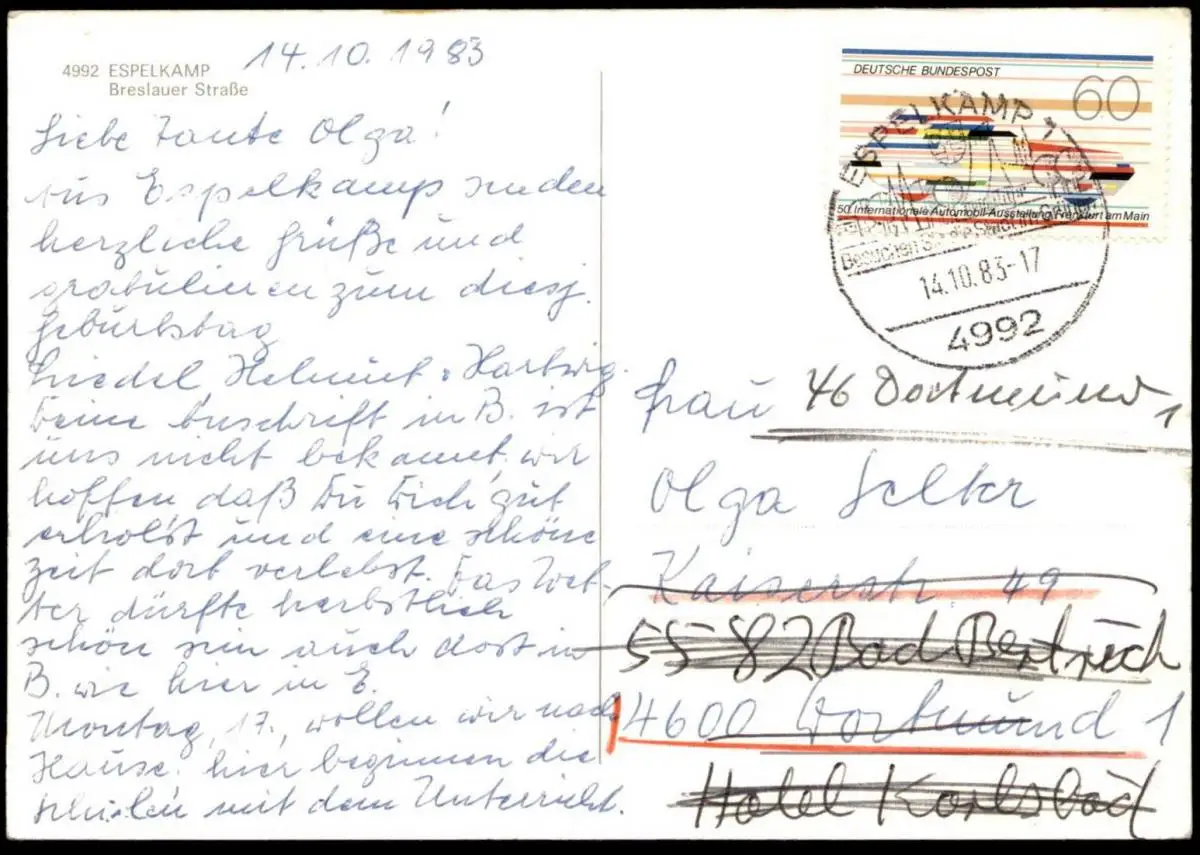 14.10.1983
4992 ESPELKAMP
Breslauer Straße
Liebe Tante Olga!
Aus Espelkamp senden
herzliche Grüße und
gratulieren zum diesj.
Geburtstag
Helmut, Hartwig.
Deine Anschrift in B. ist
uns nicht bekannt, wir
hoffen, daß Du Dich gut
erholst und eine schöne
Zeit dort verlebst. Das Wet-
ter dürfte herbstlich
schön sein auch dort in
B. wie hier in E.
Montag, 17., wollen wir nach
Hause. hier beginnen die
Schulen mit dem Unterricht.
DEUTSCHE BUNDESPOST
60
50. Internationale Automobil-Ausstellung Frankfurt am Main
ESPELKAMP 1
Besuchen Sie die
14.10.83-17
4992
Frau 46 Dortmund 1
Olga Selter
Kaiserstr. 49
5582 Bad Bertrich
4600 Dortmund 1
Hotel Karlsbad